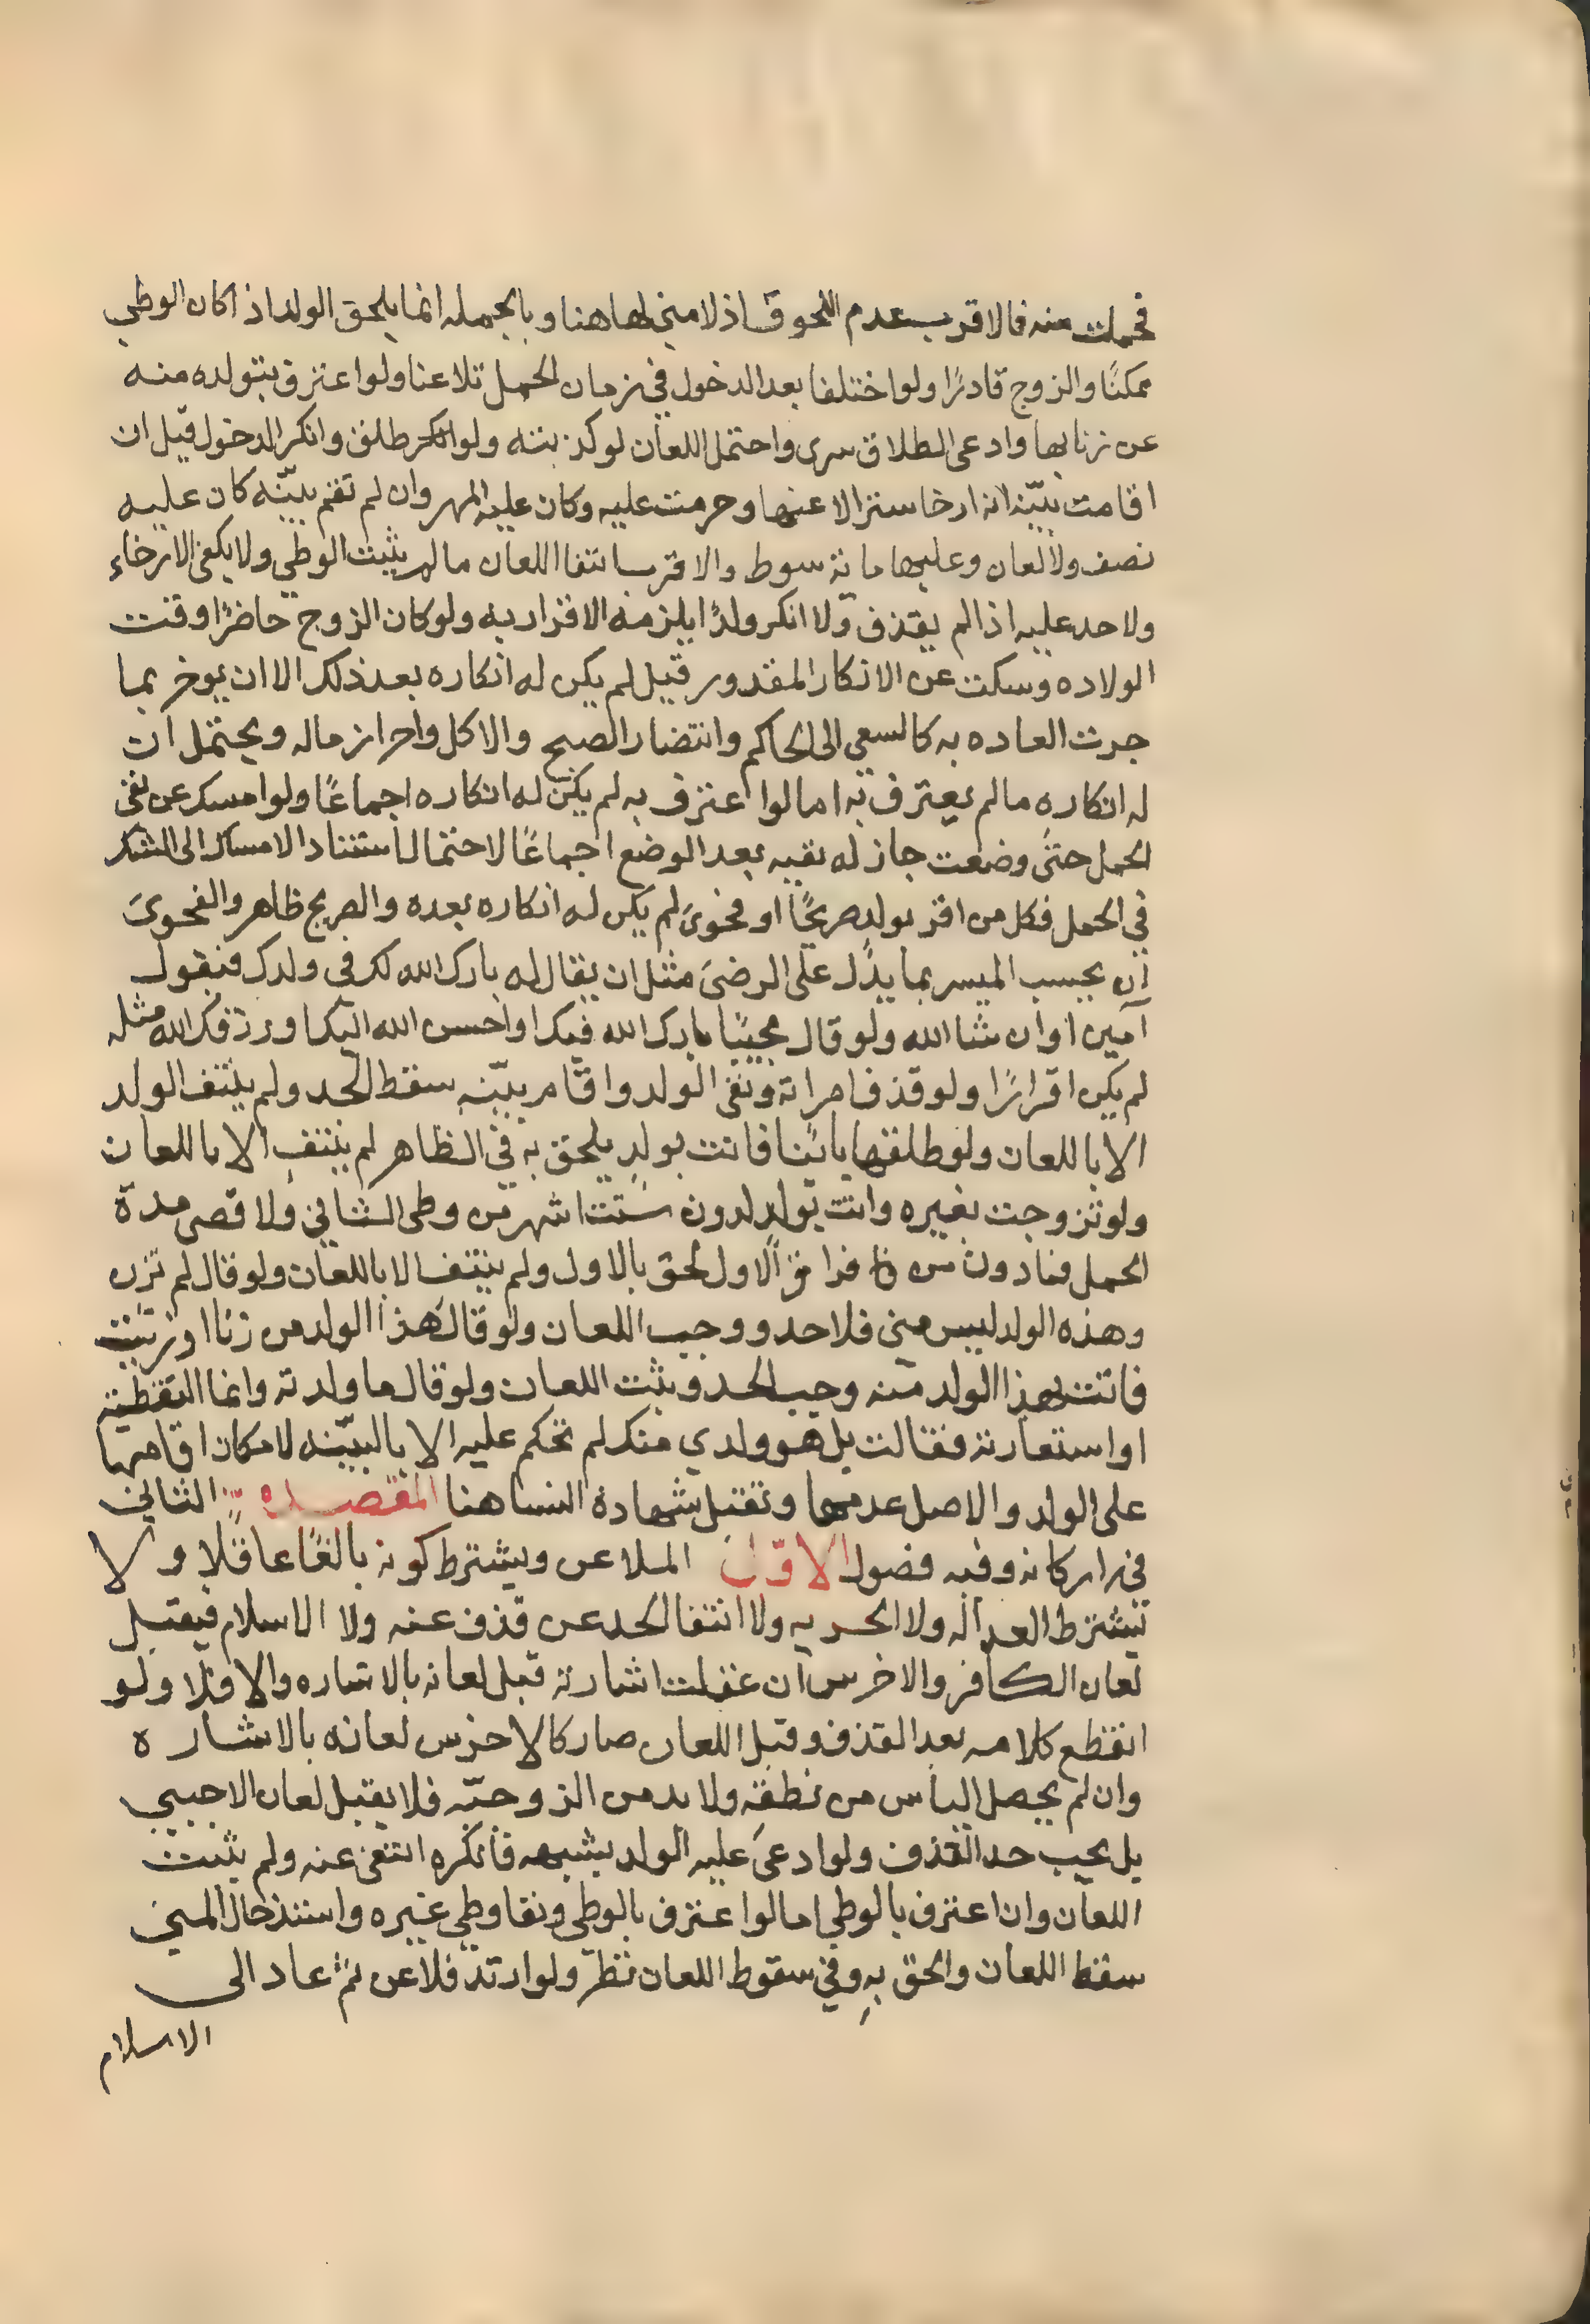 فحملت منه فالاقرب عدم اللحوق اذ لا مني لها هنا وبالجمله انما يلحق الولد اذا كان الوطي
ممكنًا والزوج قادرًا ولو اختلفا بعد الدخول في زمان الحمل تلاعنا ولو اعترف بتولده منه
عن زنا بها وادعى الطلاق سرى واحتمل اللعان لو كذبته ولو انكر طلق وانكر الدخول قيل ان
اقامت بيّنه انه ارخا ستر الاعنها وحرمت عليه وكان عليه المهر وان لم تقم بيّنه كان عليه
نصف ولا لعان وعليها ماية سوط والاقرب انتفا اللعان ما لم يثبت الوطي ولا يكفي الارخاء
ولا حد عليه اذا لم يقذف ولا انكر ولدًا يلزمه الاقرار به ولو كان الزوج حاضرًا وقت
الولاده وسكت عن الانكار المقدور قيل لم يكن له انكاره بعد ذلك الا ان يوخر بما
جرت العاده به كالسعي الى الحاكم وانتضار الصبح والاكل واحراز ماله ويحتمل ان
له انكاره ما لم يعترف به اما لو اعترف به لم يكن له انكاره اجماعًا ولو امسك عن نفي
الحمل حتى وضعت جاز له نفيه بعد الوضع اجماعًا لاحتمال استناد الامساك الى الشك
في الحمل فكل من اقر بولد صريحًا او فحوى لم يكن له انكاره بعده والصريح ظاهر والفحوى
ان يحبب المبسر بما يدل على الرضى مثل ان يقال له بارك الله لك في ولدك فيقول
آمين او ان شا الله ولو قال مجيبًا بارك الله فيك او احسن الله اليك او رزقك الله مثله
لم يكن اقرارًا ولو قذف امراته ونفى الولد واقام بيّنه سقط الحد ولم ينتف الولد
الا باللعان ولو طلقها باينًا فاتت بولد يلحق به في الظاهر لم ينتف الا باللعان
ولو تزوجت بغيره واتت بولد لدون ستت اشهر من وطى الثاني ولاقصى مدة
الحمل فما دون من فراق الاول لحق بالاول ولم ينتف الا باللعان ولو قال لم تزن
وهذه الولد ليس مني فلا حد ووجب اللعان ولو قال هذا الولد من زنا او زنيت
فاتت بهذا الولد منه وجب الحد وثبت اللعان ولو قال ما ولدته وانما التقطته
او استعارته فقالت بل هو ولدي منك لم نحكم عليه الا بالبيّنه لامكان اقامتها
على الولد والاصل عدمها وتقبل شهادة النسا هنا المقصده الثاني
في اركانه وفيه فصول الاوّل الملاعن ويشترط كونه بالغًا عاقلا ولا
يشترط العداله ولا الحريه ولا انتفا الحد عن قذف عنه ولا الاسلام فيقبل
لعان الكافر والاخرس ان عقلت اشارته قبل لعانه بالاشاره والا فلا ولو
انقطع كلامه بعد القذف وقبل اللعان صار كالاخرس لعانه بالاشاره
وان لم يحصل الياس من نطقه ولا بد من الزوجيّه فلا يقبل لعان الاجنبي
بل يجب حد القذف ولو ادعى عليه الولد بشبهه فانكره انتفى عنه ولم يثبت
اللعان وان اعترف بالوطي اما لو اعترف بالوطي ونفا وطي غيره واستدخال المني
سقط اللعان والحق به وفي سقوط اللعان نظر ولو ارتد فلاعن ثم عاد الى
الاسلام